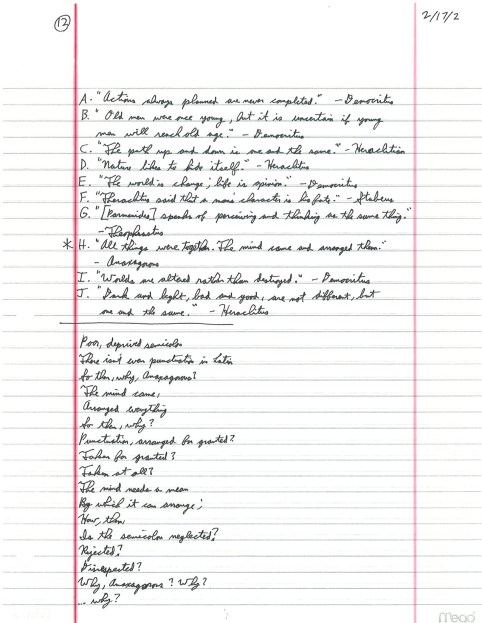 12
2/17/2
A. "Actions always planned are never completed." - Democritus
B. "Old men were once young, but it is uncertain if young
men will reach old age." - Democritus
C. "The path up and down is one and the same." - Heraclitian
D. "Nature likes to hide itself." - Heraclitus
E. "The world is change; life is opinion." - Democritus
F. "Heraclitus said that a man's character is his fate." - Stobeus
G. "[Parmenides] speaks of perceiving and thinking as the same thing."
- Theophrastus
* H. "All things were together. The mind came and arranged them."
- Anaxagoras
I. "Worlds are altered rather than destroyed." - Democritus
J. "Dark and light, bad and good, are not different, but
one and the same." - Heraclitus
Poor, deprived semicolon
There isn't even punctuation in Latin
So then, why, Anaxagoras?
The mind came,
Arranged everything
So then, why?
Punctuation, arranged for granted?
Taken for granted?
Taken at all?
The mind needs a mean
By which it can arrange;
How, then
Is the semicolon neglected?
Rejected?
Disrespected?
Why, Anaxagoras? Why?
... why?
Mead